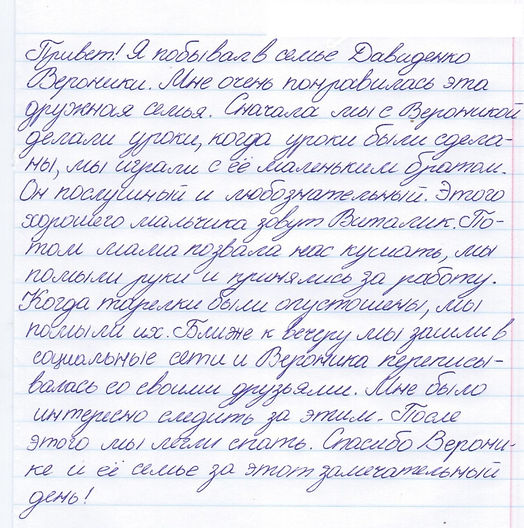 Привет! Я побывал в семье Давиденко
Вероники. Мне очень понравилась эта
дружная семья. Сначала мы с Вероникой
делали уроки, когда уроки были сдела-
ны, мы играли с её маленьким братом.
Он послушный и любознательный. Этого
хорошего мальчика зовут Виталик. По-
том мама позвала нас кушать, мы
помыли руки и принялись за работу.
Когда тарелки были опустошены, мы
помыли их. Ближе к вечеру мы зашли в
социальные сети и Вероника переписы-
валась со своими друзьями. Мне было
интересно следить за этим. После
этого мы легли спать. Спасибо Верони-
ке и её семье за этот замечательный
день!